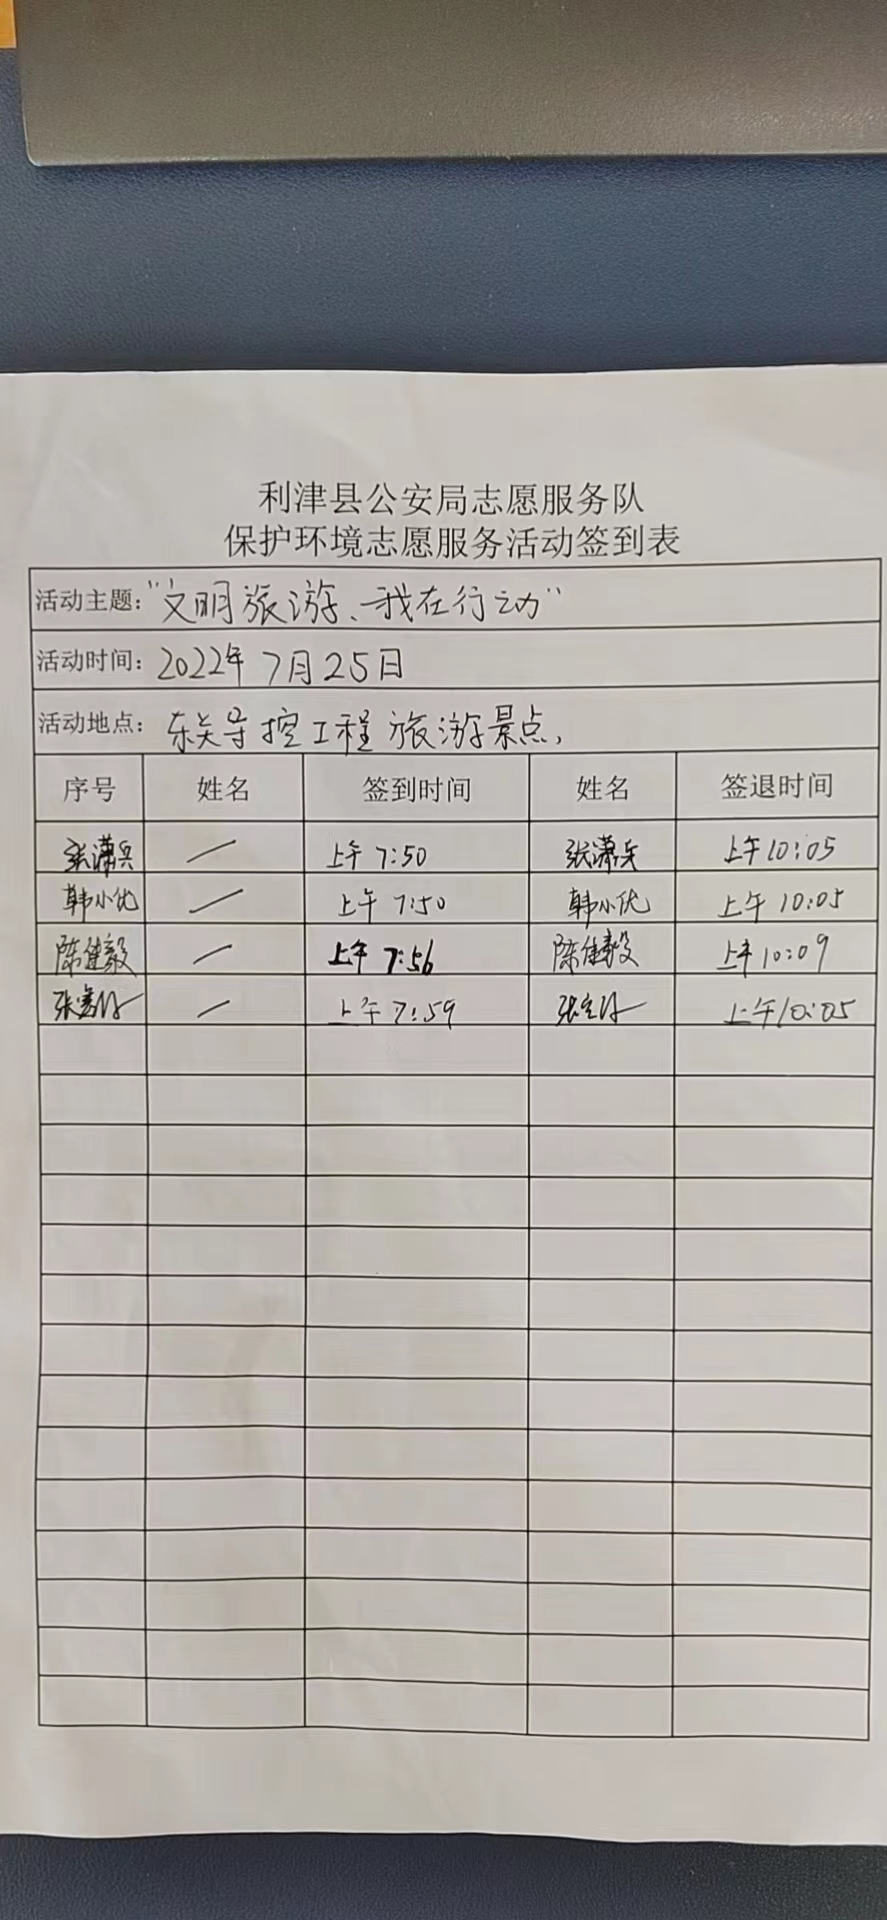 利津县公安局志愿服务队
保护环境志愿服务活动签到表
活动主题：“文明旅游、我在行动”
活动时间：2022年7月25日
活动地点：东关导控工程旅游景点，
序号 姓名 签到时间 姓名 签退时间
张潇兵 / 上午7:50 张潇兵 上午10:05
韩小优 / 上午7:50 韩小优 上午10:05
陈健毅 / 上午7:56 陈健毅 上午10:09
/ 上午7:59 上午10:05